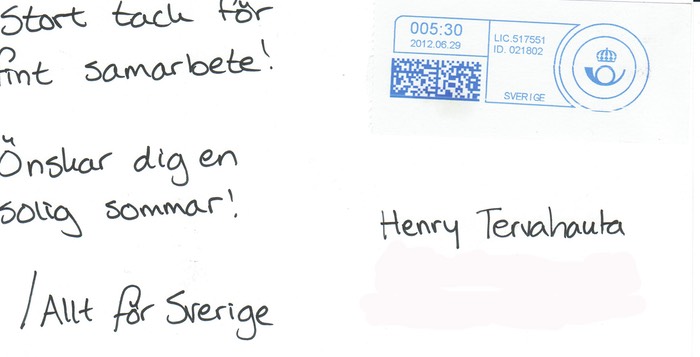 Stort tack för
fint samarbete!
Önskar dig en
solig sommar!
/Allt för Sverige
005:30
2012.06.29
LIC.517551
ID. 021802
SVERIGE
Henry Tervahauta